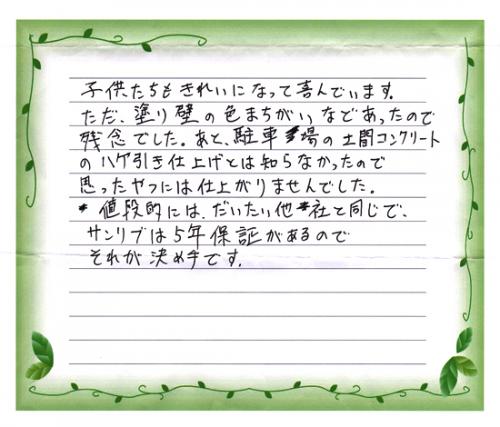 子供たちもきれいになって喜んでいます。
ただ、塗り壁の色まちがいなどあったので
残念でした。あと、駐車場の土間コンクリート
のハケ引き仕上げとは知らなかったので
思ったやつには仕上がりませんでした。
* 値段的には、だいたい他社と同じで、
サンリブは5年保証があるので
それが決め手です。